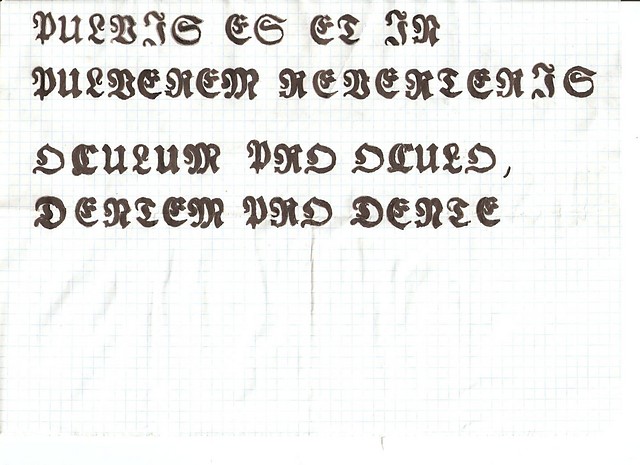 PULVIS ES ET IN
PULVEREM REVERTERIS
OCULUM PRO OCULO,
DENTEM PRO DENTE